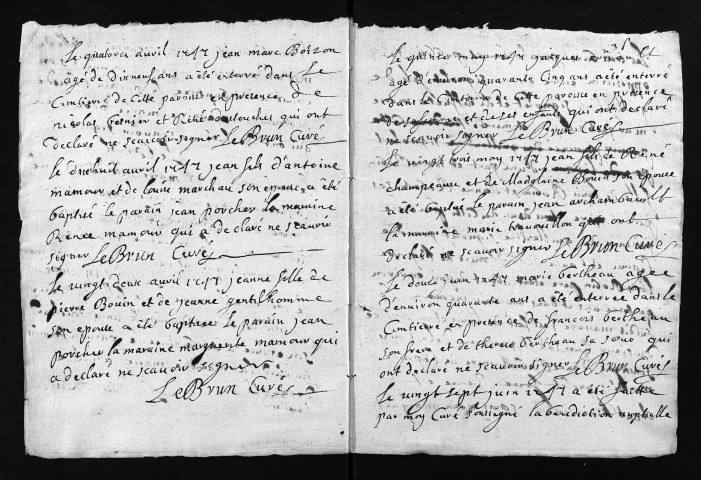 Le quatorze avril 1747 jean marc Boizon
agé de dixneuf ans a été enterré dans le
Cimtierre de Cette paroisse en presence de
nicolas et René qui ont
declaré ne scauoir signer LeBrun Curé
le dixhuit avril 1747 jean fils d'antoine
mamour et de louise marchau son epouse a été
baptisé le parain jean porcher la maraine
Renée mamour qui a declaré ne scauoir
signer LeBrun Curé
le vingt deux avril 1747 jeanne fille de
pierre Bouin et de jeanne gentilhomme
son epouse a été baptisée le parain jean
porcher la maraine marguerite mamour qui
a declaré ne scauoir signer
LeBrun Curé
31
Le quinze may 1747 jacques
agé d'environ quarante Cinq ans a été enterré
dans le Cimtierre de Cette paroisse en presence
de sa femme et de ses enfants qui ont declaré
ne scauoir signer LeBrun Curé
le vingt trois may 1747 jean fils de René
champeaux et de Madelaine Bouin son epouse
a été baptisé le parain jean archambault
la maraine marie qui ont
declaré ne scauoir signer LeBrun Curé
le douze juin 1747 marie bertheau agée
d'environ quarante ans a été enterrée dans le
Cimtierre en presence de francois bertheau
son frere et de therese bertheau sa soeur qui
ont declaré ne scauoir signer LeBrun Curé
le vingt sept juin 1747 a été faitte
par moy Curé soussigné la benediction nuptialle